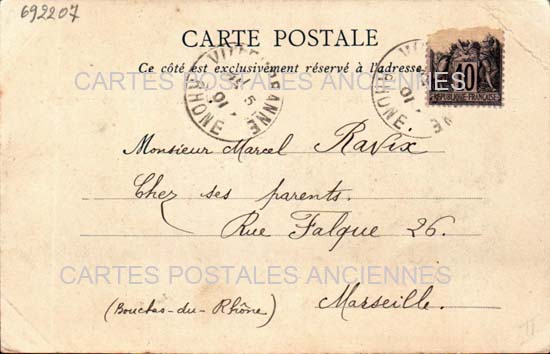 692207
CARTE POSTALE
Ce côté est exclusivement réservé à l'adresse
RHÔNE
10
REPUBLIQUE FRANÇAISE
CARTES POSTALES ANCIENNES
Monsieur Marcel Ravix
Chez ses parents.
Rue Falque 26.
CARTES POSTALES ANCIENNES
(Bouches-du-Rhône) Marseille.